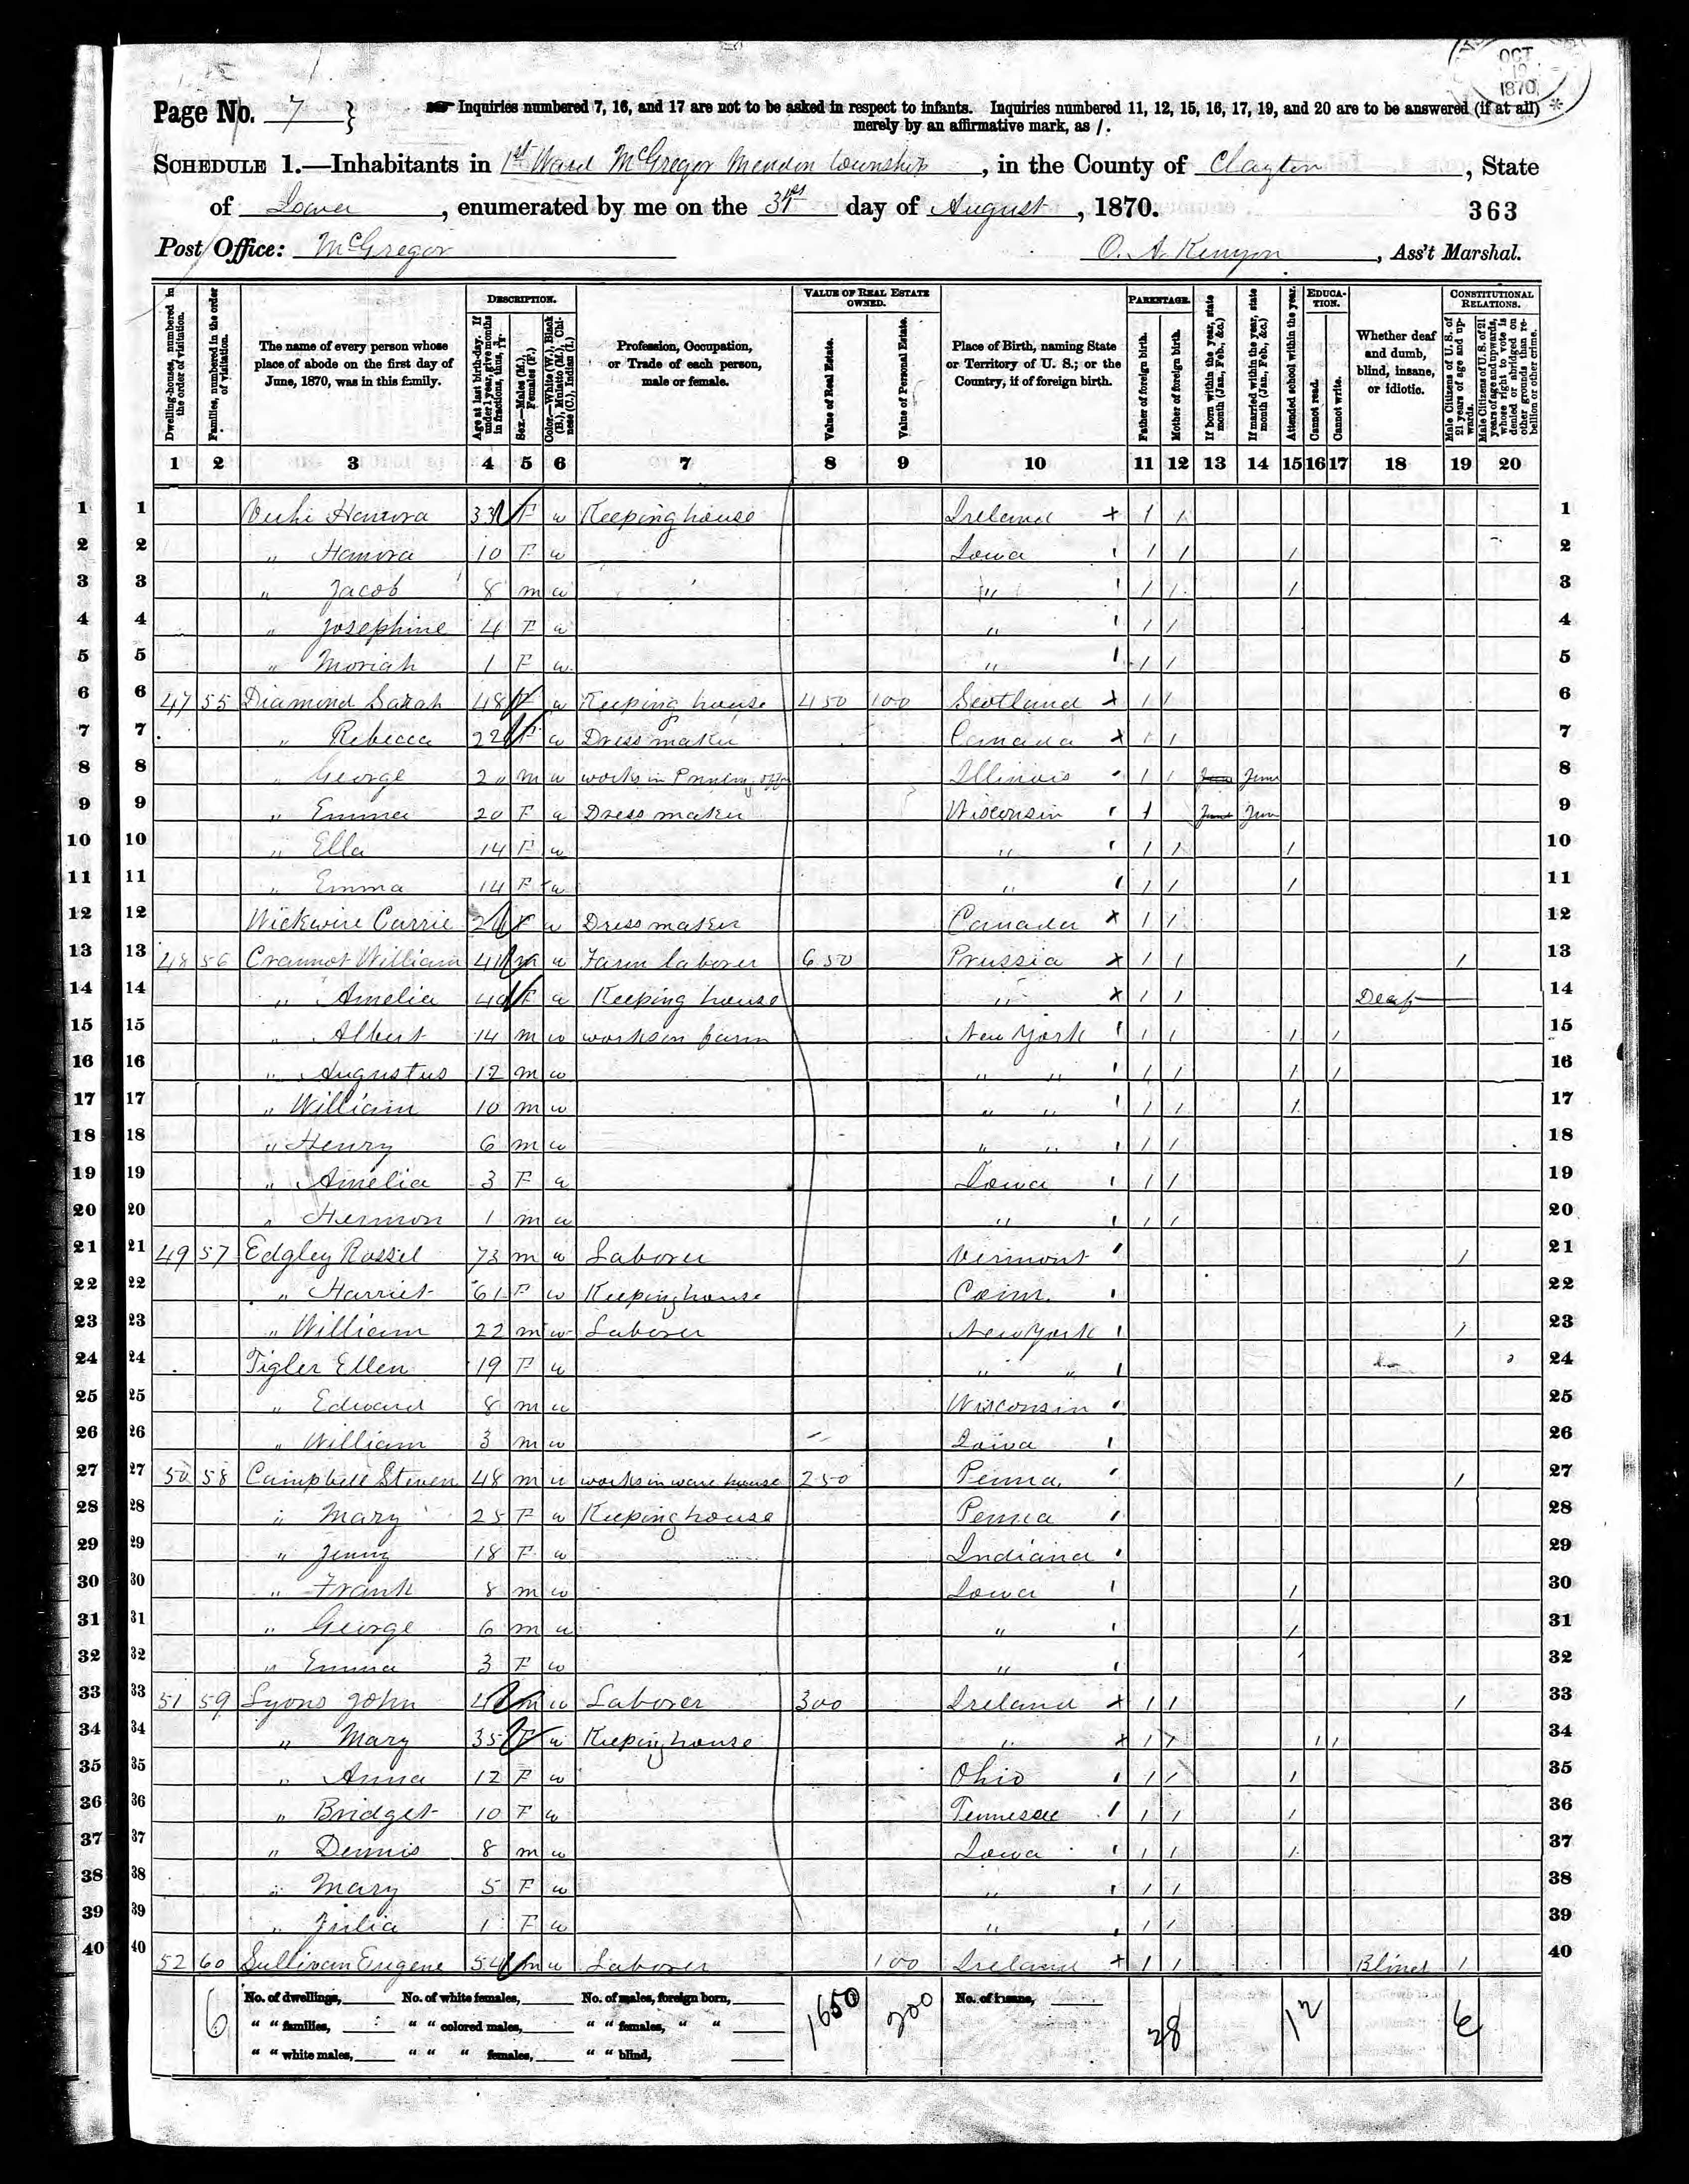 OCT
1870
Page No. 7
Inquiries numbered 7, 16, and 17 are not to be asked in respect to infants. Inquiries numbered 11, 12, 15, 16, 17, 19, and 20 are to be answered (if at all)
merely by an affirmative mark, as /.
SCHEDULE 1.—Inhabitants in 1st Ward McGregor Mendon township, in the County of Clayton, State
of Iowa, enumerated by me on the 31st day of August, 1870.
363
Post Office: McGregor
O. A. Kenyon, Ass't Marshal.
Dwelling-houses, numbered in the order of visitation.
Families, numbered in the order of visitation.
The name of every person whose place of abode on the first day of June, 1870, was in this family.
DESCRIPTION.
Age at last birth-day. If under 1 year, give months in fractions, thus, 3/12.
Sex.—Males (M.), Females (F.)
Color.—White (W.), Black (B.), Mulatto (M.), Chinese (C.), Indian (I.)
Profession, Occupation, or Trade of each person, male or female.
VALUE OF REAL ESTATE OWNED.
Value of Real Estate.
Value of Personal Estate.
Place of Birth, naming State or Territory of U. S.; or the Country, if of foreign birth.
PARENTAGE.
Father of foreign birth.
Mother of foreign birth.
If born within the year, state month (Jan., Feb., &c.)
If married within the year, state month (Jan., Feb., &c.)
Attended school within the year.
EDUCATION.
Cannot read.
Cannot write.
Whether deaf and dumb, blind, insane, or idiotic.
CONSTITUTIONAL RELATIONS.
Male Citizens of U. S. of 21 years of age and upwards.
Male Citizens of U. S. of 21 years of age and upwards, whose right to vote is denied or abridged on other grounds than rebellion or other crime.
1 2 3 4 5 6 7 8 9 10 11 12 13 14 15 16 17 18 19 20
1 1 Hanora 33 F w Keeping house Ireland x / / 1
2 2 " Hanora 10 F w Iowa / / / 2
3 3 " Jacob 8 m w " / / / 3
4 4 " Josephine 4 F w " / / 4
5 5 " Moriah 1 F w " / / 5
6 6 47 55 Diamond Sarah 48 F w Keeping house 450 100 Scotland x / / 6
7 7 " Rebecca 22 F w Dress maker Canada x / / 7
8 8 " George 20 m w works in Printing offi Illinois / / June June 8
9 9 " Emma 20 F w Dress maker Wisconsin / June June 9
10 10 " Ella 14 F w " / / / 10
11 11 " Emma 14 F w " / / / 11
12 12 Wickwire Carrie F w Dress maker Canada x / / 12
13 13 48 56 Crannot William 41 m w Farm laborer 650 Prussia x / / / 13
14 14 " Amelia 40 F w Keeping house " x / / Deaf 14
15 15 " Albert 14 m w works on farm New York / / / / 15
16 16 " Augustus 12 m w " " / / / / 16
17 17 " William 10 m w " " / / / 17
18 18 " Henry 6 m w " " / / 18
19 19 " Amelia 3 F w Iowa / / 19
20 20 " Hermon 1 m w " / / 20
21 21 49 57 Edgley Rossel 73 m w Laborer Vermont / 21
22 22 " Harriet 61 F w Keeping house Conn. 22
23 23 " William 22 m w Laborer New York / 23
24 24 Tigler Ellen 19 F w " " 24
25 25 " Edward 8 m w Wisconsin 25
26 26 " William 3 m w Iowa 26
27 27 50 58 Campbell Steven 48 m w works in ware house 250 Penna. / 27
28 28 " Mary 25 F w Keeping house Penna 28
29 29 " Jenny 18 F w Indiana 29
30 30 " Frank 8 m w Iowa / 30
31 31 " George 6 m w " / 31
32 32 " Emma 3 F w " / 32
33 33 51 59 Lyons John m w Laborer 300 Ireland x / / / 33
34 34 " Mary 35 F w Keeping house " x / / / / 34
35 35 " Anna 12 F w Ohio / / / 35
36 36 " Bridget 10 F w Tennessee / / / 36
37 37 " Dennis 8 m w Iowa / / / 37
38 38 " Mary 5 F w " / / 38
39 39 " Julia 1 F w " / / 39
40 40 52 60 Sullivan Eugene 54 m w Laborer 100 Ireland x / / Blind / 40
No. of dwellings, No. of white females, No. of males, foreign born, No. of insane,
" " families, " " colored males, " " females, " "
" " white males, " " " females, " " blind,
6 1650 200 28 12 6